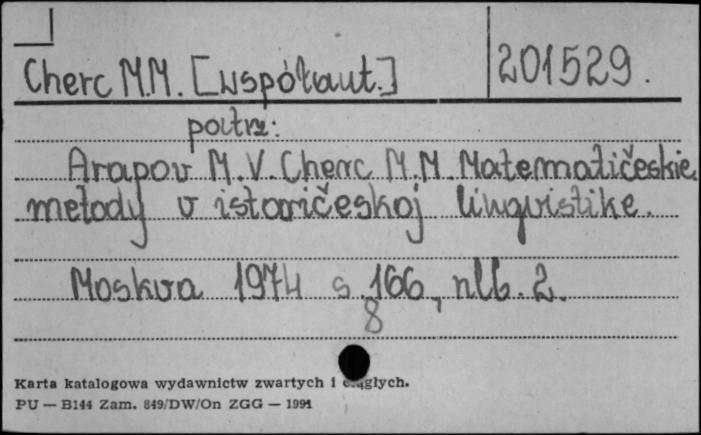 Cherc M.M. [współaut.] 201529.
patrz:
Arapov M.V. Cherc M.M. Matematičeskie
metody v istoričeskoj lingvistike.
Moskva 1974 s. 166, nlb. 2.
8
Karta katalogowa wydawnictw zwartych i ciągłych.
PU — B144 Zam. 849/DW/On ZGG — 1991